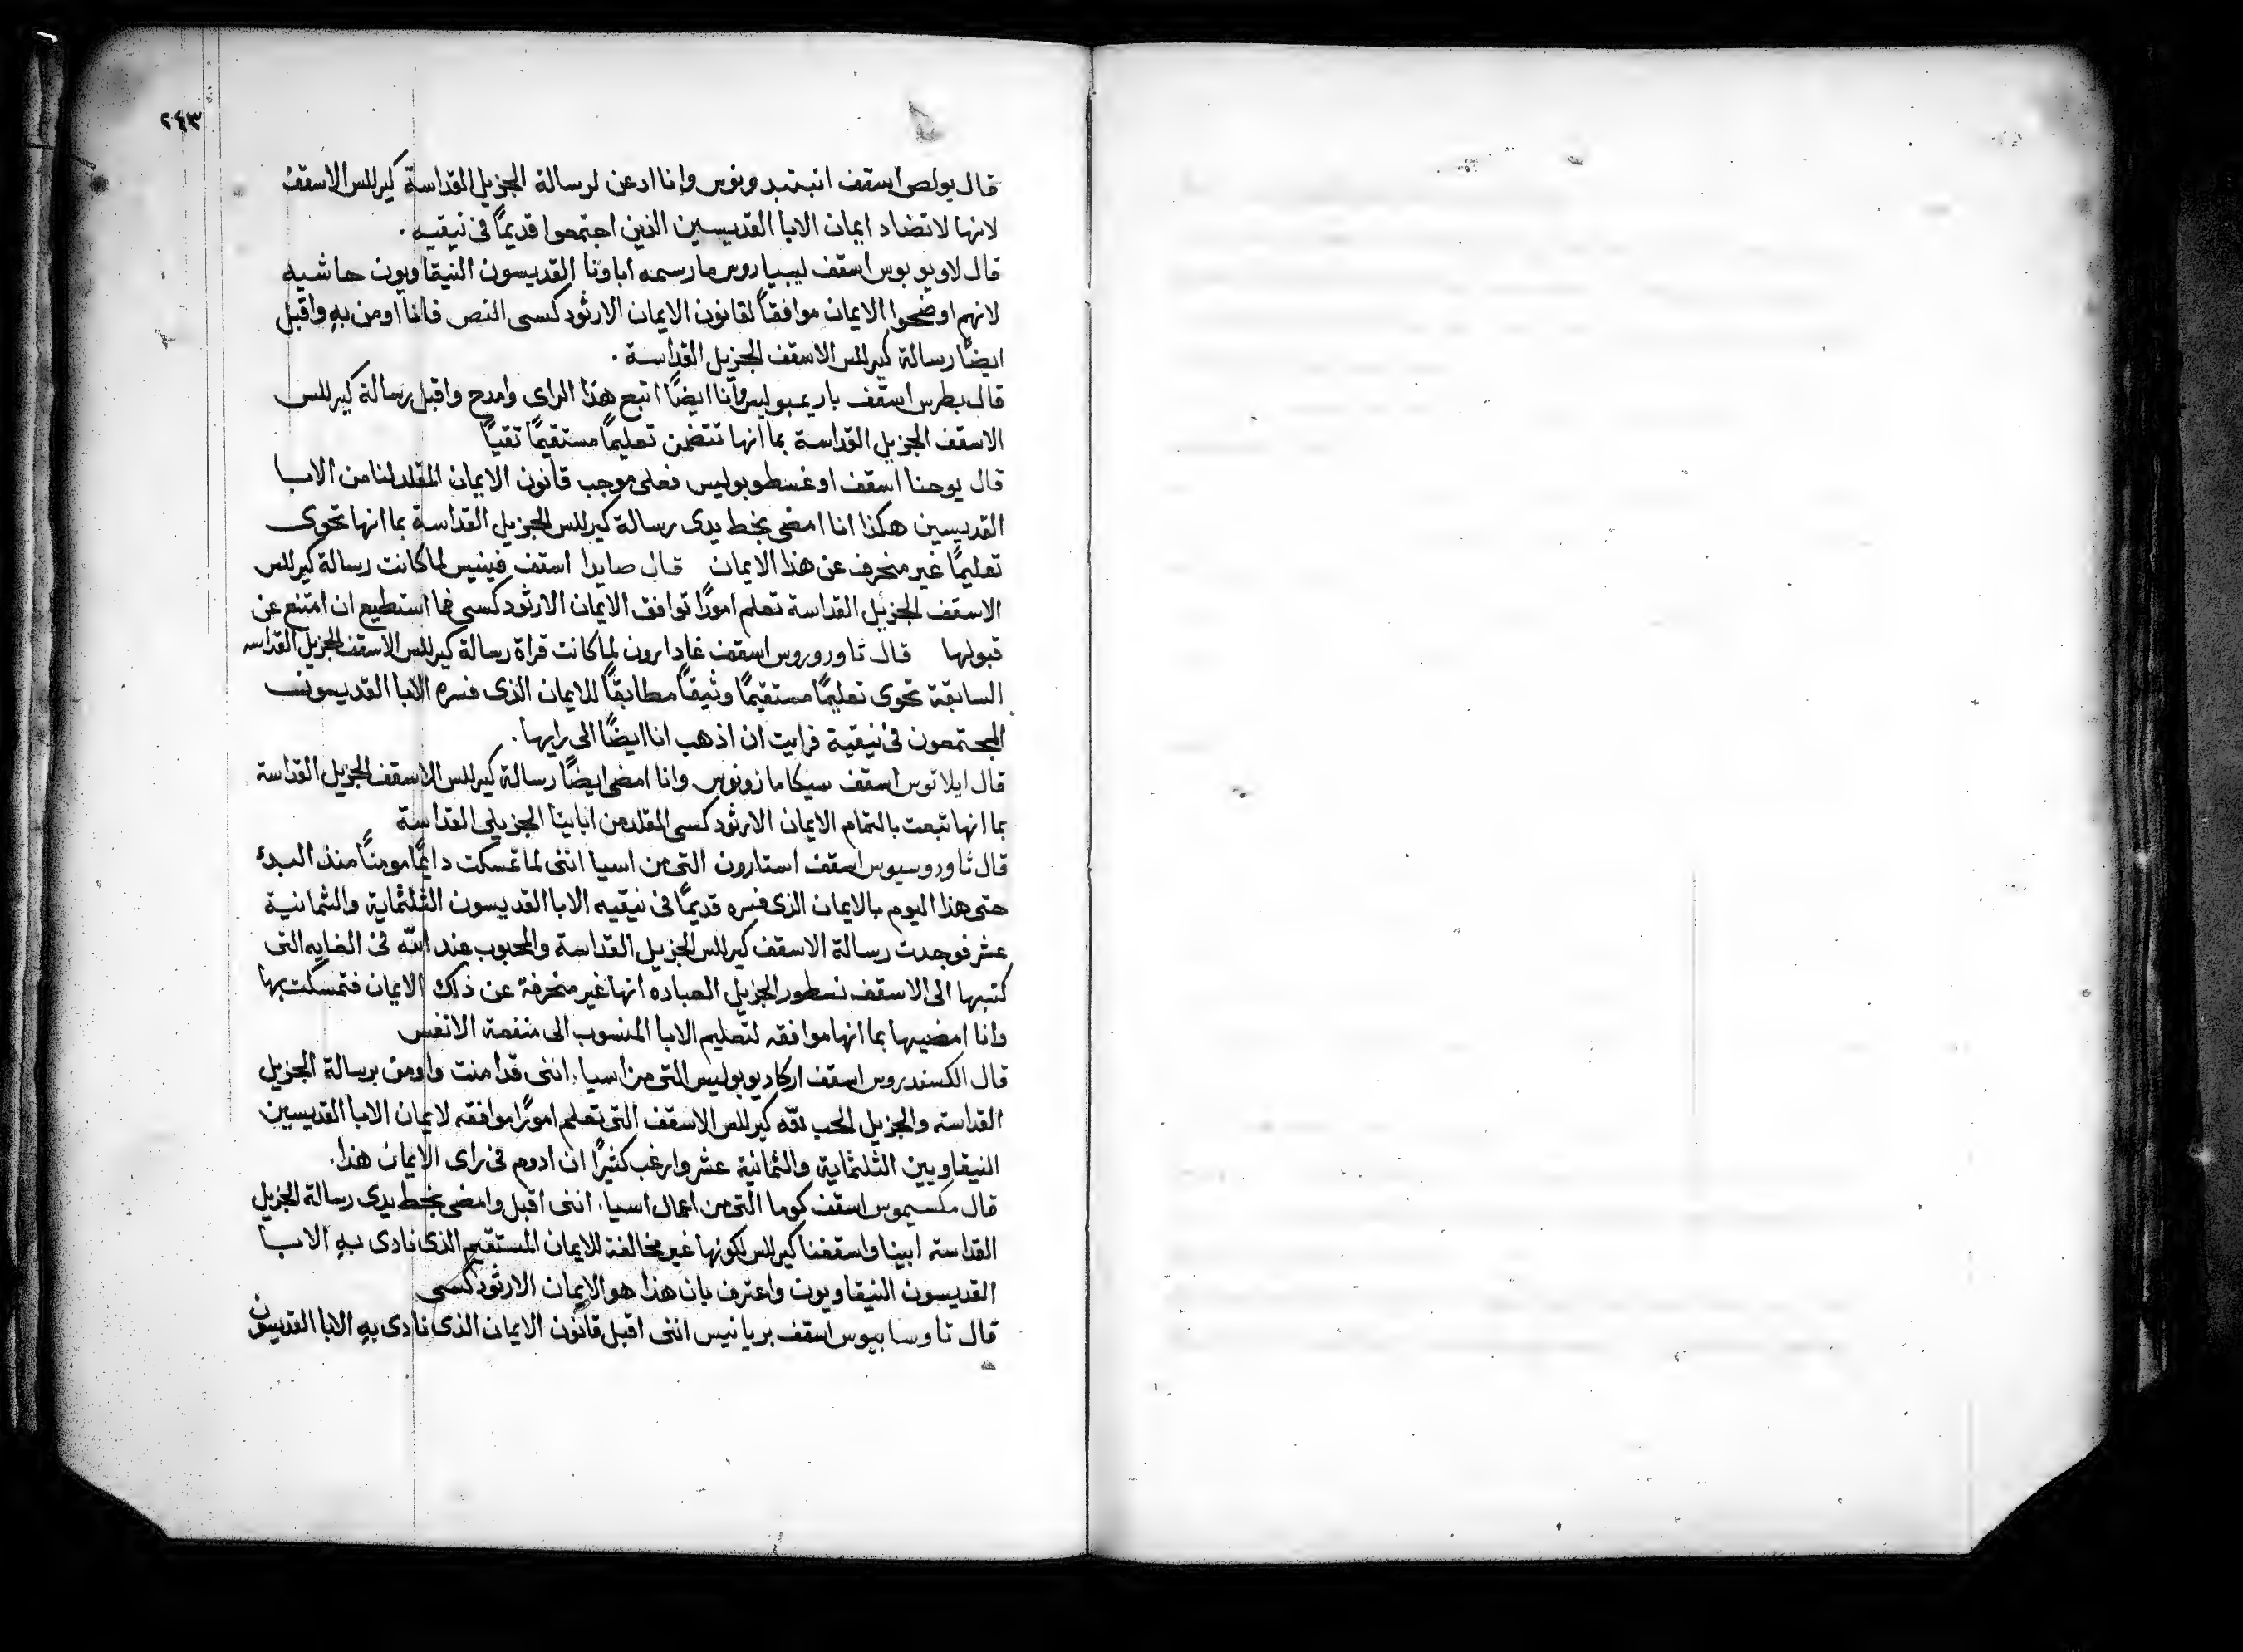 ٢٤٣
قال بولص اسقف انبتبدونوس وانا ادعن لرسالة الجزيل القداسة كيرللس الاسقف
لانها لا تضاد ايمان الابا القديسين الذين اجتمعوا قديمًا فى نيقيه .
قال لاويوبوس اسقف ليبياروس ما رسمه اباونا القديسون النيقاويون حاشيه
لانهم اوضحوا الايمان موافقاً لقانون الايمان الارثودكسى النص فانا اومن بهِ واقبل
ايضًا رسالة كيرللس الاسقف الجزيل القداسة .
قال بطرس اسقف باريمبوليس وانا ايضًا اتبع هذا الراى وامدح واقبل رسالة كيرللس
الاسقف الجزيل القداسة بما انها تتضمن تعليمًا مستقيمًا تقياً
قال يوحنا اسقف اوغسطوبوليس فعلى موجب قانون الايمان المقلد لنا من الابا
القديسين هكذا انا امضى بخط يدى رسالة كيرللس الجزيل القداسة بما انها تحوى
تعليمًا غير منحرف عن هذا الايمان قال صايدا اسقف فينيس لما كانت رسالة كيرللس
الاسقف الجزيل القداسة تعلم امورًا توافق الايمان الارثودكسى فما استطيع ان امتنع عن
قبولها قال تاوروروس اسقف غادارون لما كانت قراة رسالة كيرللس الاسقف الجزيل القداسه
السابقة تحوى تعليمًا مستقيمًا وثيقاً مطابقاً للايمان الذى فسره الابا القديسون
المجتمعون فى نيقية فرايت ان اذهب انا ايضًا الى رايها .
قال ايلاتوس اسقف سيكامازونوس وانا امضى ايضًا رسالة كيرللس الاسقف الجزيل القداسة
بما انها تبعت بالتمام الايمان الارثودكسى المقلد من ابايينا الجزيلى القداسة
قال ثاوروسيوس اسقف استارون التى من اسيا اننى لما تمسكت دايمًا مومنًا منذ البدء
حتى هذا اليوم بالايمان الذى فسره قديمًا فى نيقيه الابا القديسون الثلثماية والثمانية
عشر فوجدت رسالة الاسقف كيرللس الجزيل القداسة والمحبوب عند الله فى الغايه التى
كتبها الى الاسقف نسطور الجزيل العباده انها غير منحرفة عن ذلك الايمان فتمسكت بها
وانا امضيها بما انها موافقه لتعليم الابا المنسوب الى منفعة الانفس
قال الكسندروس اسقف اركاديوبوليس التى من اسيا . اننى قد امنت واومن برسالة الجزيل
القداسته والجزيل الحب لله كيرللس الاسقف التى تعلم امورًا موافقه لايمان الابا القديسين
النيقاويين الثلثماية والثمانية عشر وارغب كثيرًا ان ادوم فى راى الايمان هذا .
قال مكسيموس اسقف كوما التى من اعمال اسيا . اننى اقبل وامضى بخط يدى رسالة الجزيل
القداسته ابينا واسقفنا كيرللس لكونها غير مخالفة للايمان المستقيم الذى نادى بهِ الابا
القديسون النيقاويون واعترف بان هذا هو الايمان الارثودكسى
قال تاوسابيوس اسقف بريانيس اننى اقبل قانون الايمان الذى نادى بهِ الابا القديسون